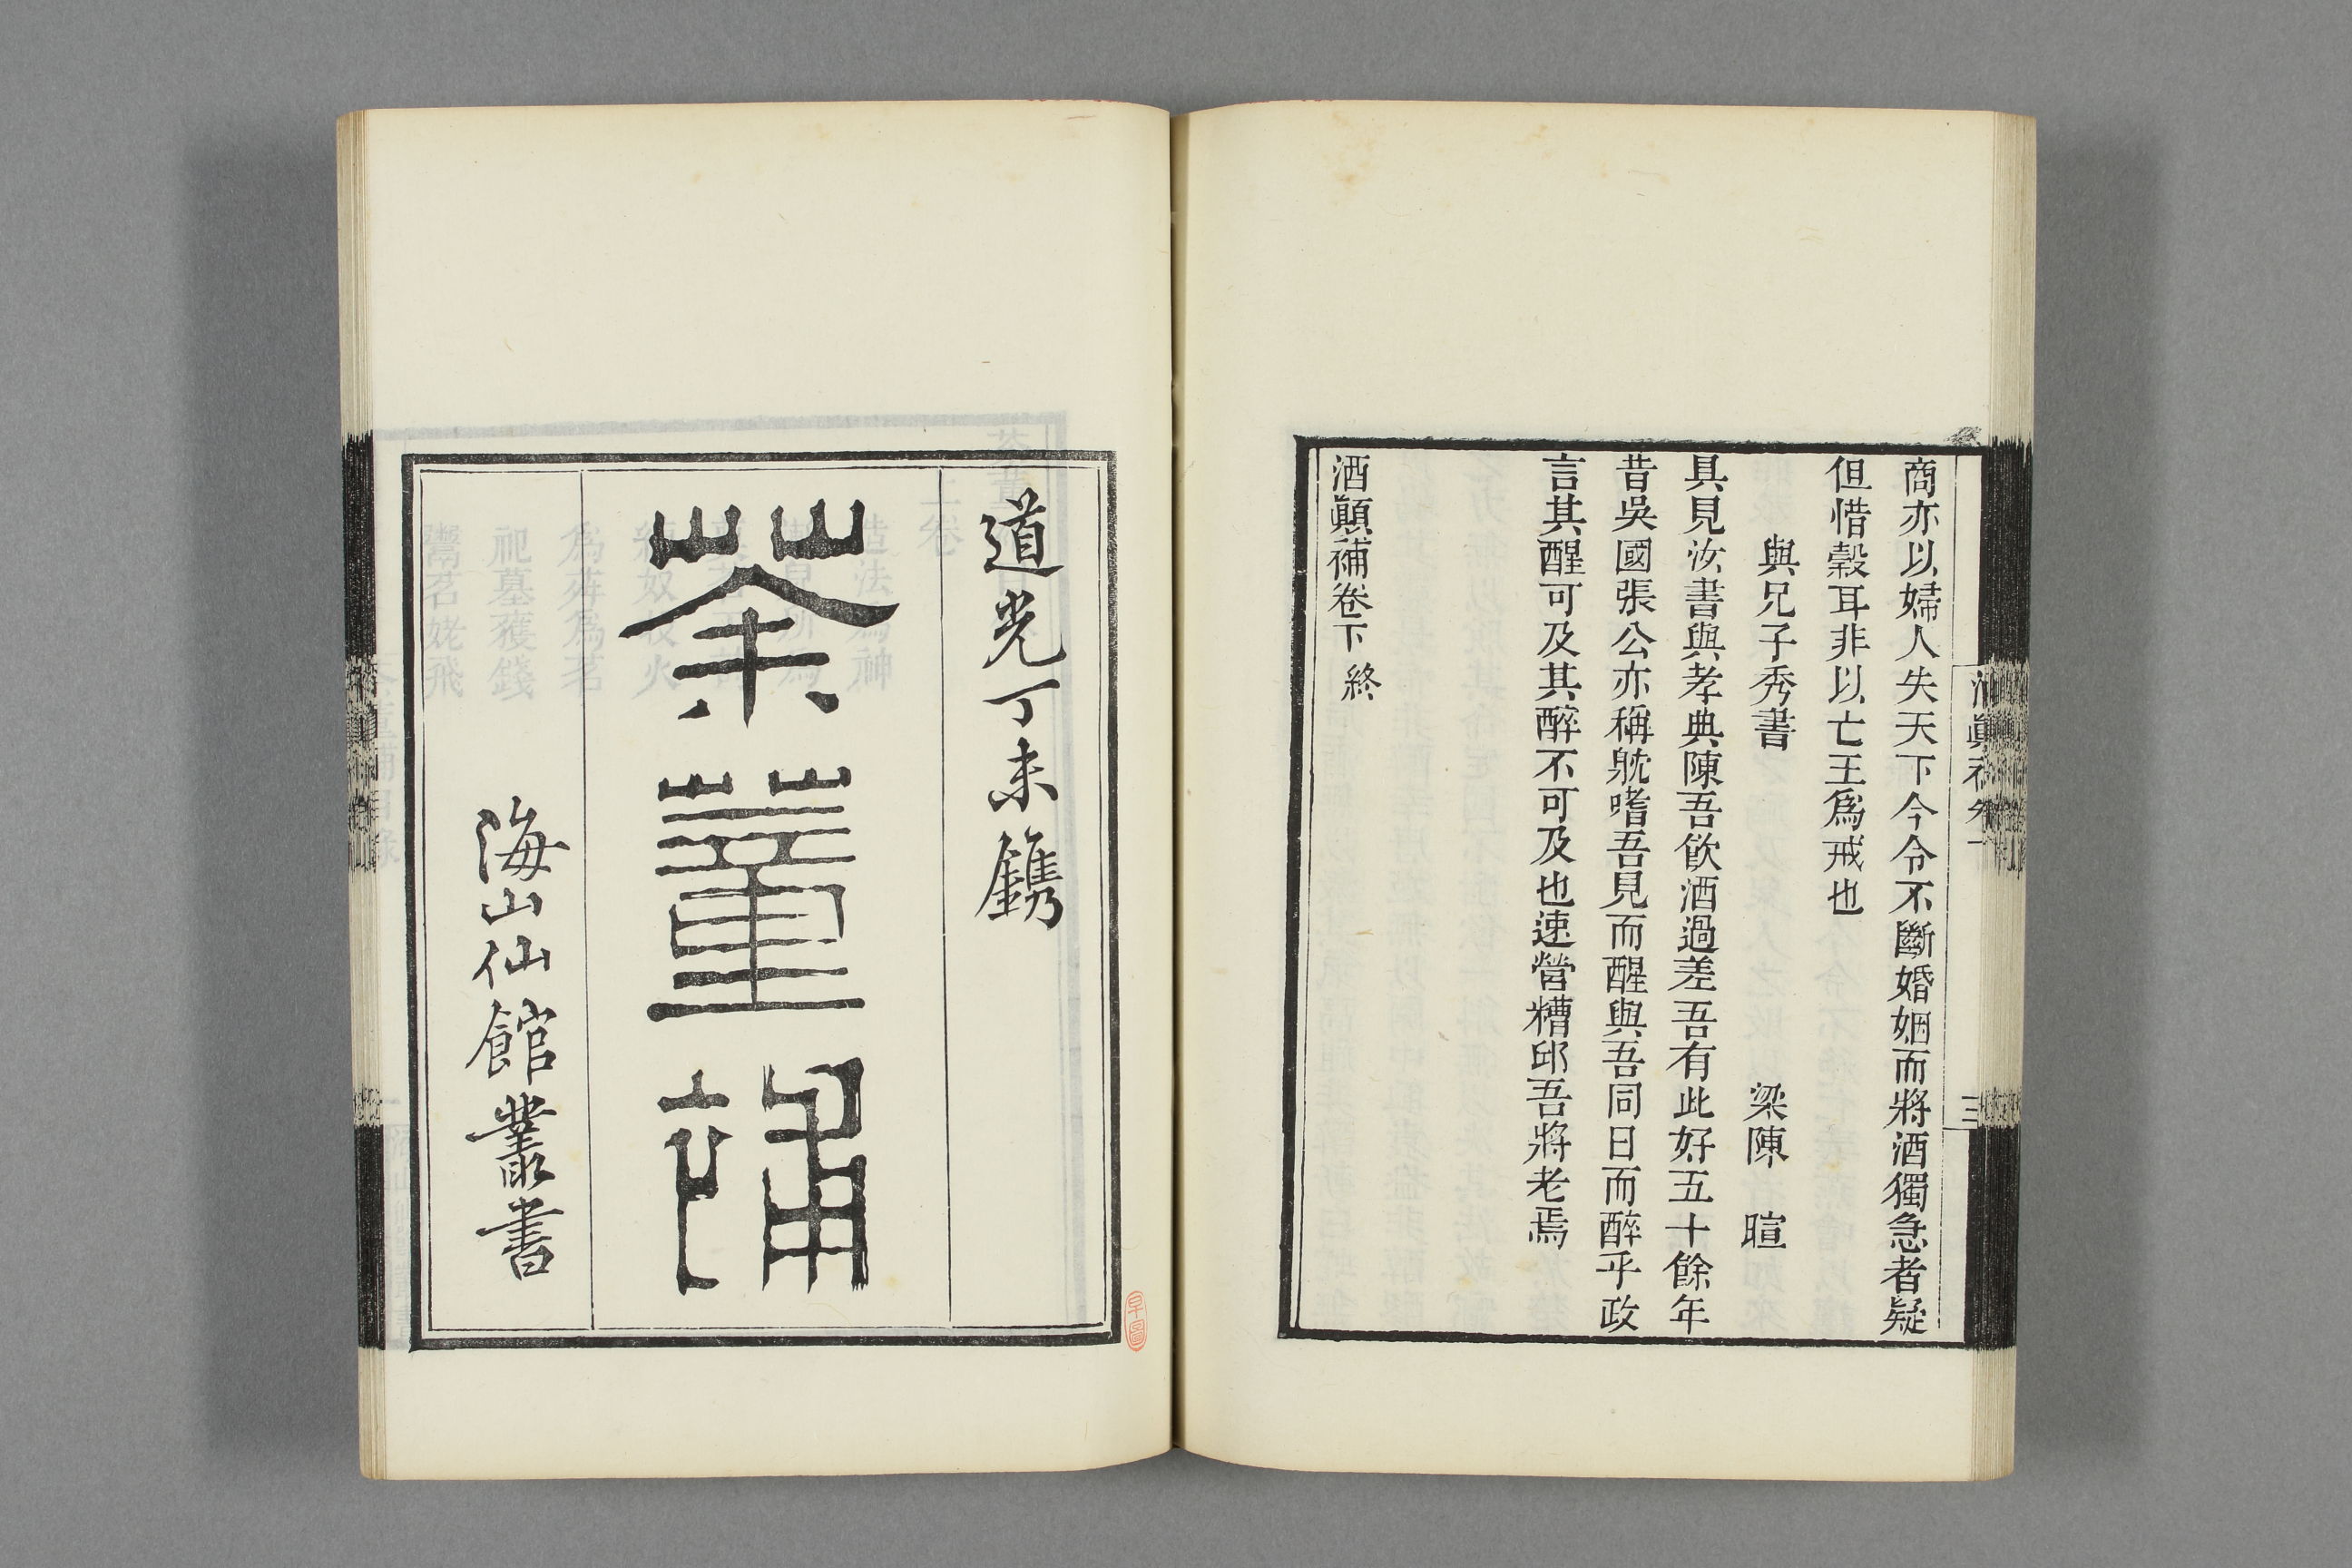 商亦以婦人失天下今令不斷婚姻而將酒獨急者疑
但惜穀耳非以亡王爲戒也
與兄子秀書 梁陳 暄
具見汝書與孝典陳吾飲酒過差吾有此好五十餘年
昔吳國張公亦稱躭嗜吾見而醒與吾同日而醉乎政
言其醒可及其醉不可及也速營糟邱吾將老焉
酒顚補卷下 終
道光丁未鐫
茶董補
海山仙館叢書
早圖